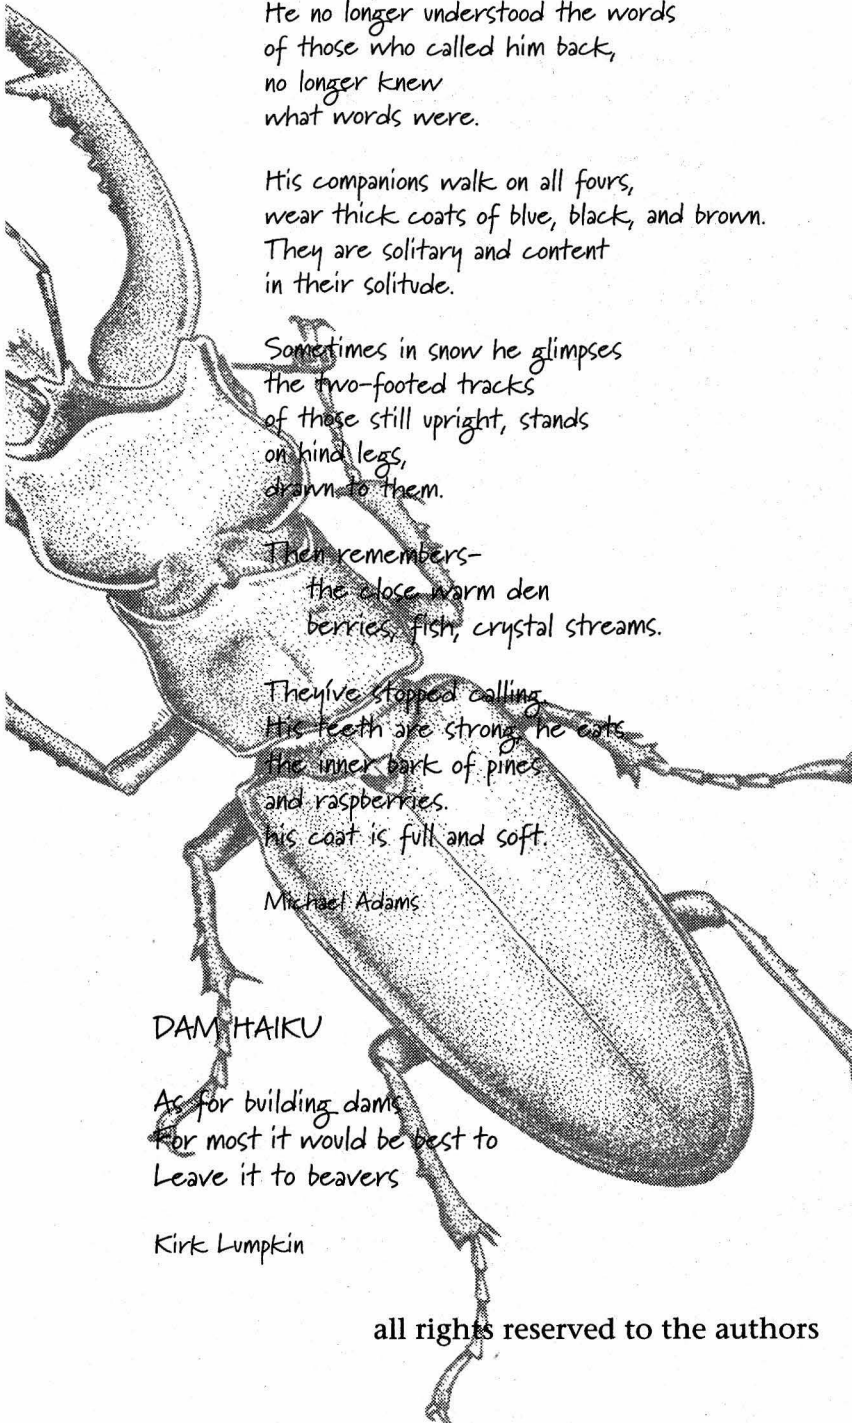 He no longer understood the words
of those who called him back,
no longer knew
what words were.
His companions walk on all fours,
wear thick coats of blue, black, and brown.
They are solitary and content
in their solitude.
Sometimes in snow he glimpses
the two-footed tracks
of those still upright, stands
on hind legs,
drawn to them.
Then remembers-
the close warm den
berries, fish, crystal streams.
Theyíve stopped calling.
His teeth are strong, he eats
the inner bark of pines
and raspberries.
his coat is full and soft.
Michael Adams
DAM HAIKU
As for building dams
For most it would be best to
Leave it to beavers
Kirk Lumpkin
all rights reserved to the authors